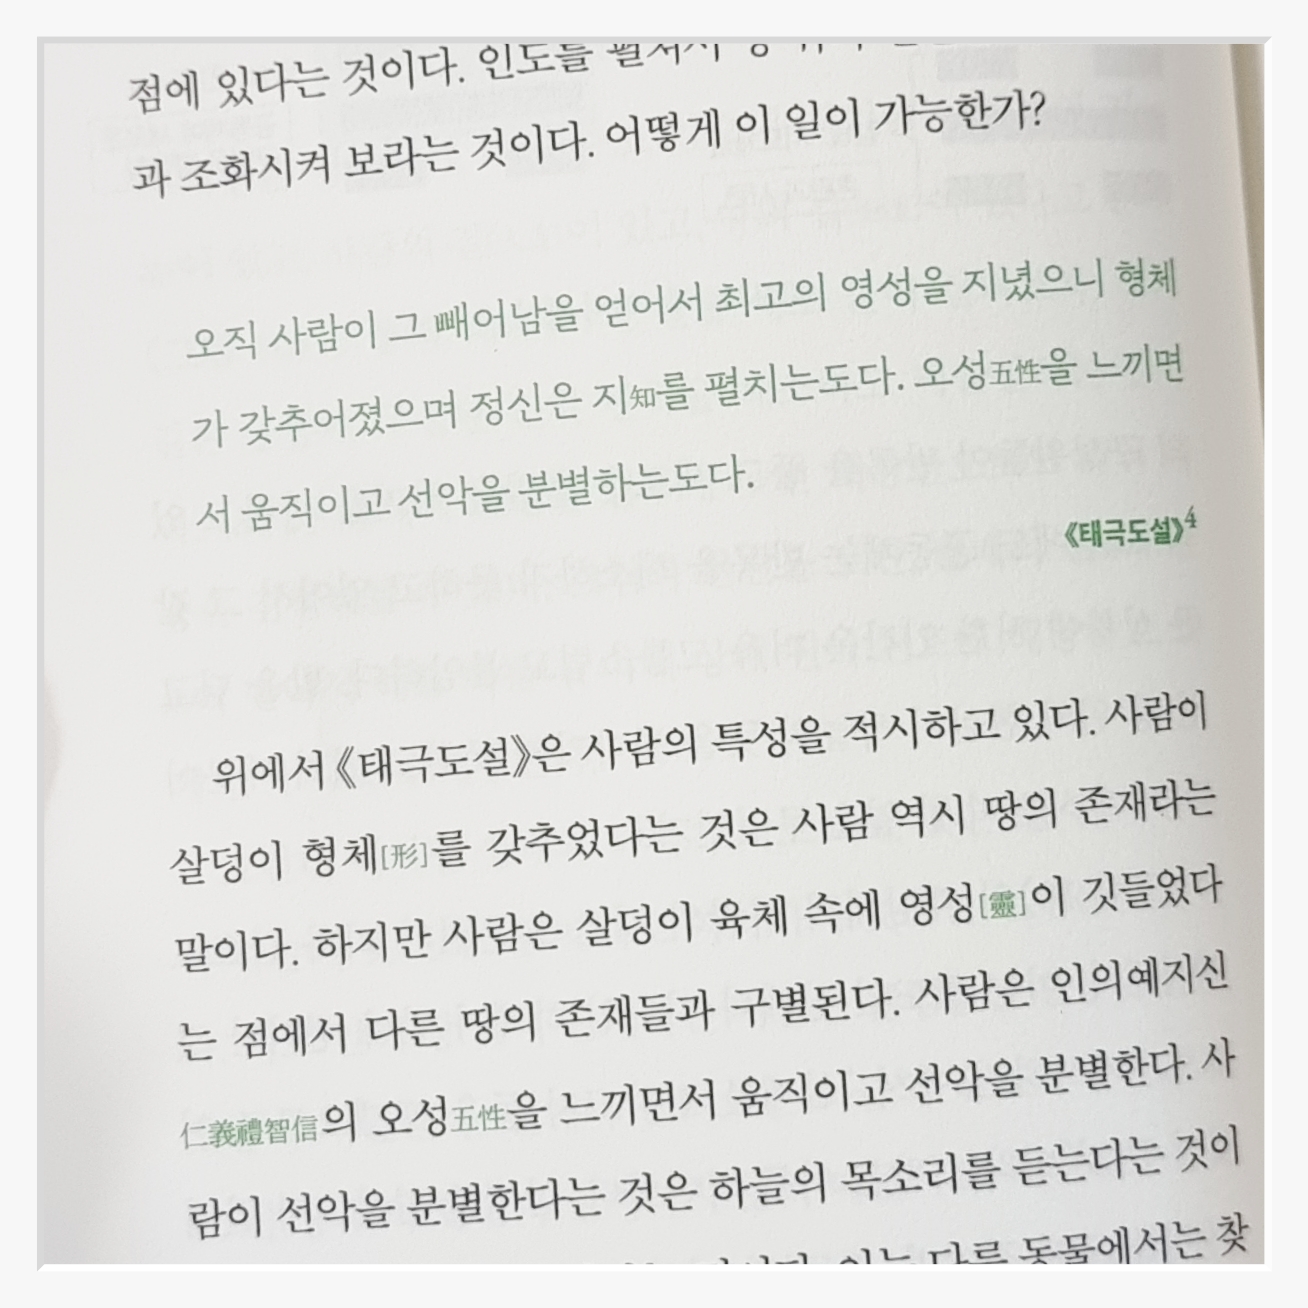 점에 있다는 것이다. 인도를 펼쳐서
과 조화시켜 보라는 것이다. 어떻게 이 일이 가능한가?
오직 사람이 그 빼어남을 얻어서 최고의 영성을 지녔으니 형체
가 갖추어졌으며 정신은 지知를 펼치는도다. 오성五性을 느끼면
서 움직이고 선악을 분별하는도다.
《태극도설》4
위에서 《태극도설》은 사람의 특성을 적시하고 있다. 사람이
살덩이 형체[形]를 갖추었다는 것은 사람 역시 땅의 존재라는
말이다. 하지만 사람은 살덩이 육체 속에 영성[靈]이 깃들었다
는 점에서 다른 땅의 존재들과 구별된다. 사람은 인의예지신
仁義禮智信의 오성五性을 느끼면서 움직이고 선악을 분별한다. 사
람이 선악을 분별한다는 것은 하늘의 목소리를 듣는다는 것이
다른 동물에서는 찾